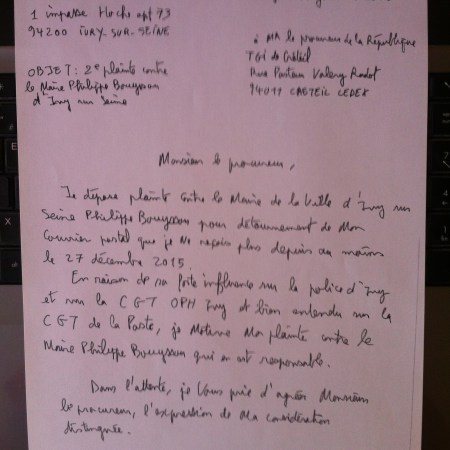 1 impasse Hoche apt 73
94200 IVRY-SUR-SEINE
à Mr le procureur de la République
TGI de Créteil
Rue Pasteur Valery Radot
94011 CRETEIL CEDEX
OBJET : 2e plainte contre
le Maire Philippe Bouyssou
d'Ivry sur Seine
Monsieur le procureur,
Je dépose plainte contre le Maire de la Ville d'Ivry sur
Seine Philippe Bouyssou pour détournement de Mon
Courrier postal que je ne reçois plus depuis au moins
le 27 décembre 2015.
En raison de sa forte influence sur la police d'Ivry
et sur la CGT OPH Ivry et bien entendu sur la
CGT de la Poste, je Motive Ma plainte contre le
Maire Philippe Bouyssou qui en est responsable.
Dans l'attente, je Vous prie d'agréer Monsieur
le procureur, l'expression de Ma considération
distinguée.